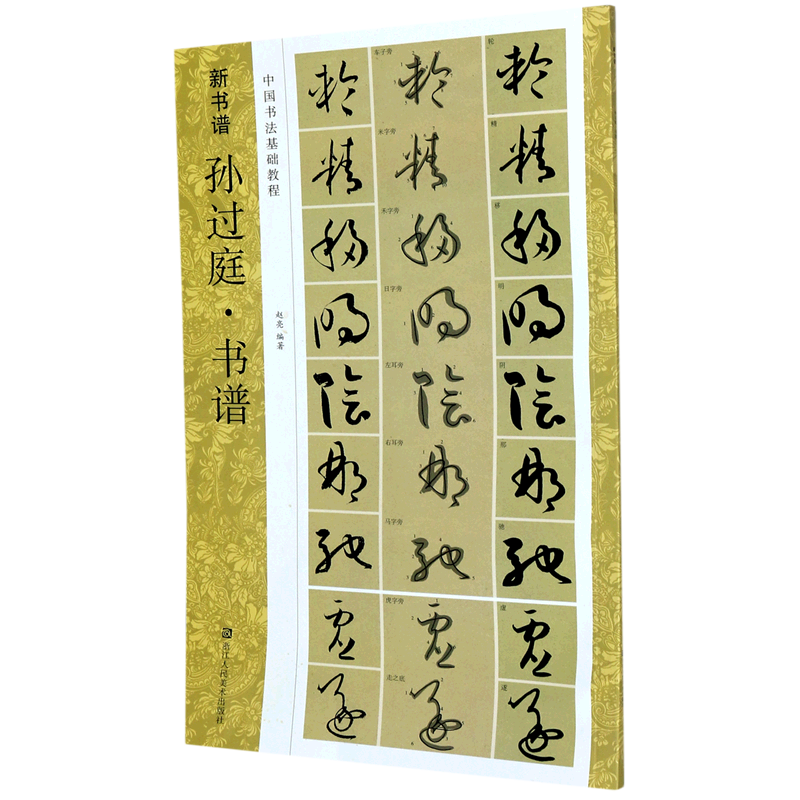 新书谱
孙过庭·书谱
浙江人民美术出版社
中国书法基础教程
赵亮 编著
车子旁
轮
米字旁
精
禾字旁
移
日字旁
明
左耳旁
阴
右耳旁
马字旁
驰
虎字旁
虚
走之底
遂